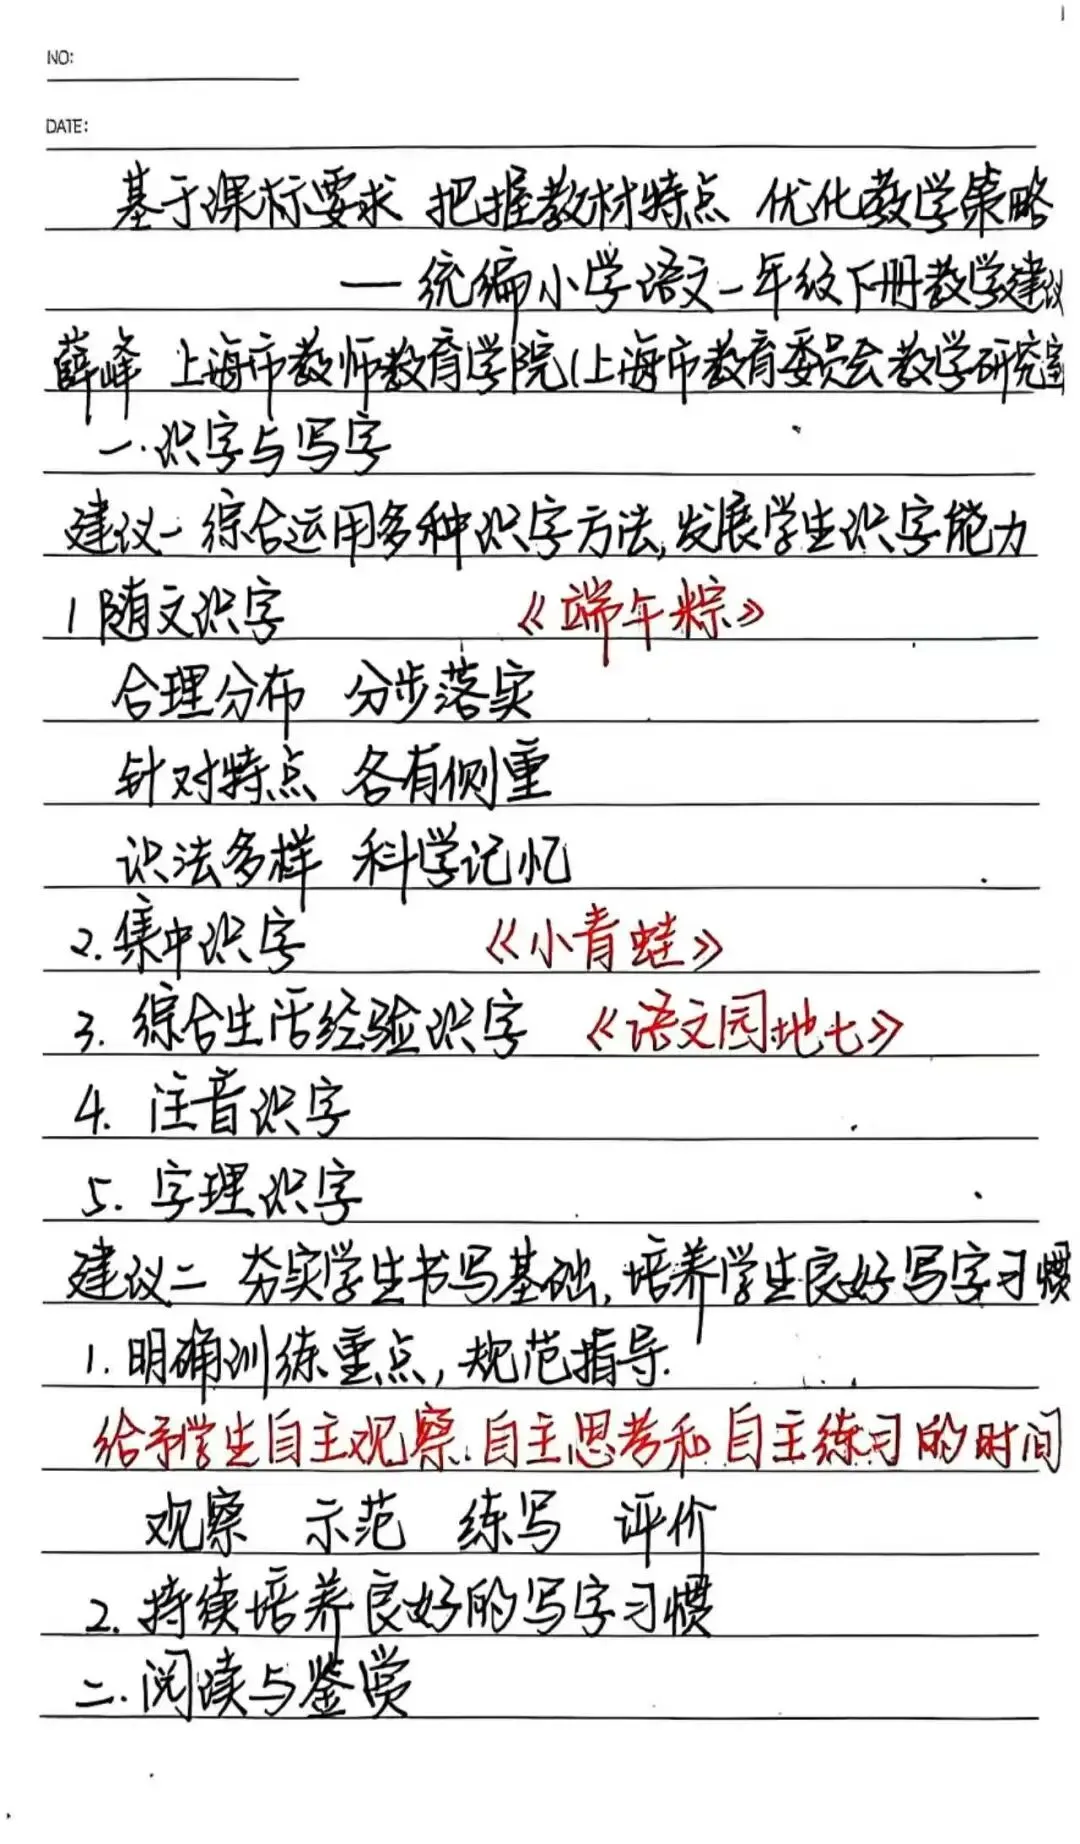 NO:
DATE:
基于课标要求 把握教材特点 优化教学策略
—统编小学语文一年级下册教学建议
薛峰 上海市教师教育学院(上海市教育委员会教学研究室
一.识字与写字
建议一 综合运用多种识字方法,发展学生识字能力
1 随文识字 《端午粽》
合理分布 分步落实
针对特点 各有侧重
识法多样 科学记忆
2.集中识字 《小青蛙》
3.综合生活经验识字 《语文园地七》
4.注音识字
5.字理识字
建议二 夯实学生书写基础,培养学生良好写字习惯
1.明确训练重点,规范指导.
给予学生自主观察.自主思考和自主练习的时间
观察 示范 练写 评价
2.持续培养良好的写字习惯
二.阅读与鉴赏